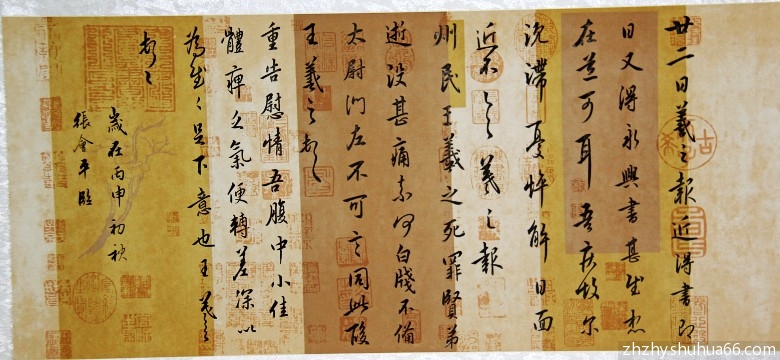 廿一日羲之報近得書即
日又得永興書甚慰想
在道可耳吾疾故尔
沉滯憂悴解日面
近不具羲之報
州民王羲之死罪賢弟
逝没甚痛奈何白牋不備
太尉門左不可言同此酸
王羲之頓首
重告慰情吾腹中小佳
體痺乏氣便轉差深以
為慰々足下意也王羲之
頓首
歲在丙申初秋
張會平臨
zhzhyshuhua66.com